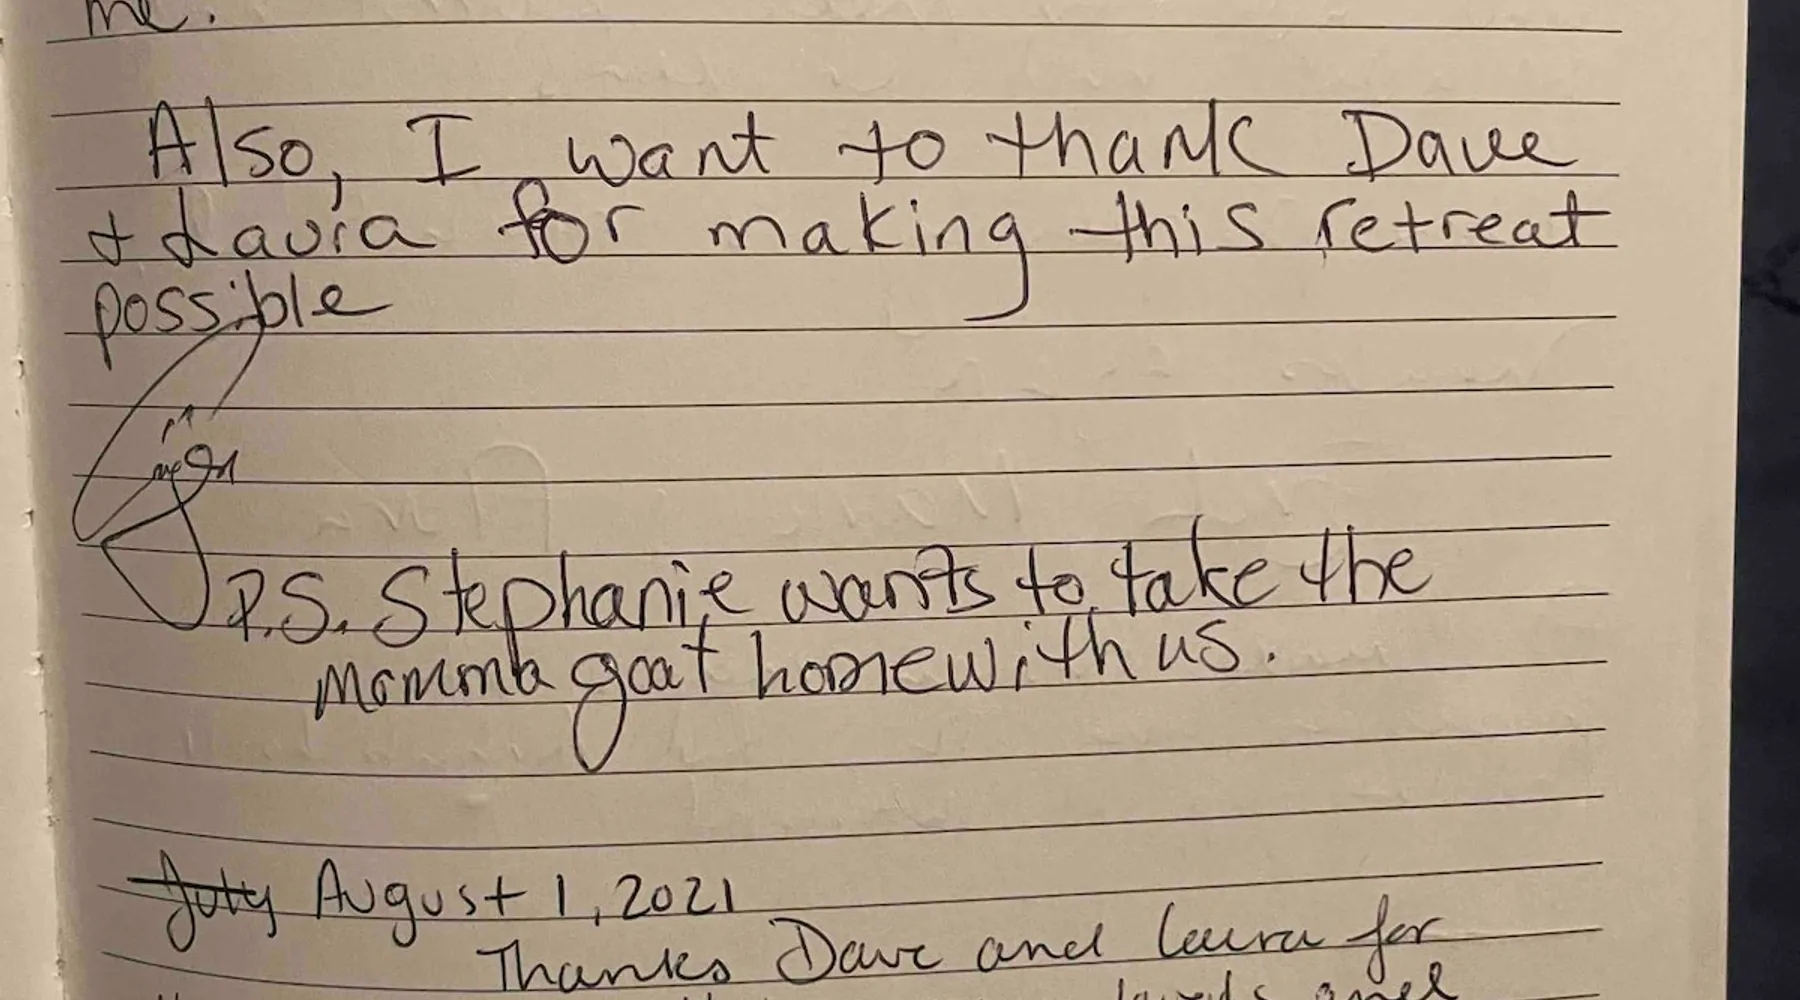 me.
Also, I want to thank Dave
+ Laura for making this retreat
possible
P.S. Stephanie wants to take the
momma goat home with us.
July August 1, 2021
Thanks Dave and Laura for
and